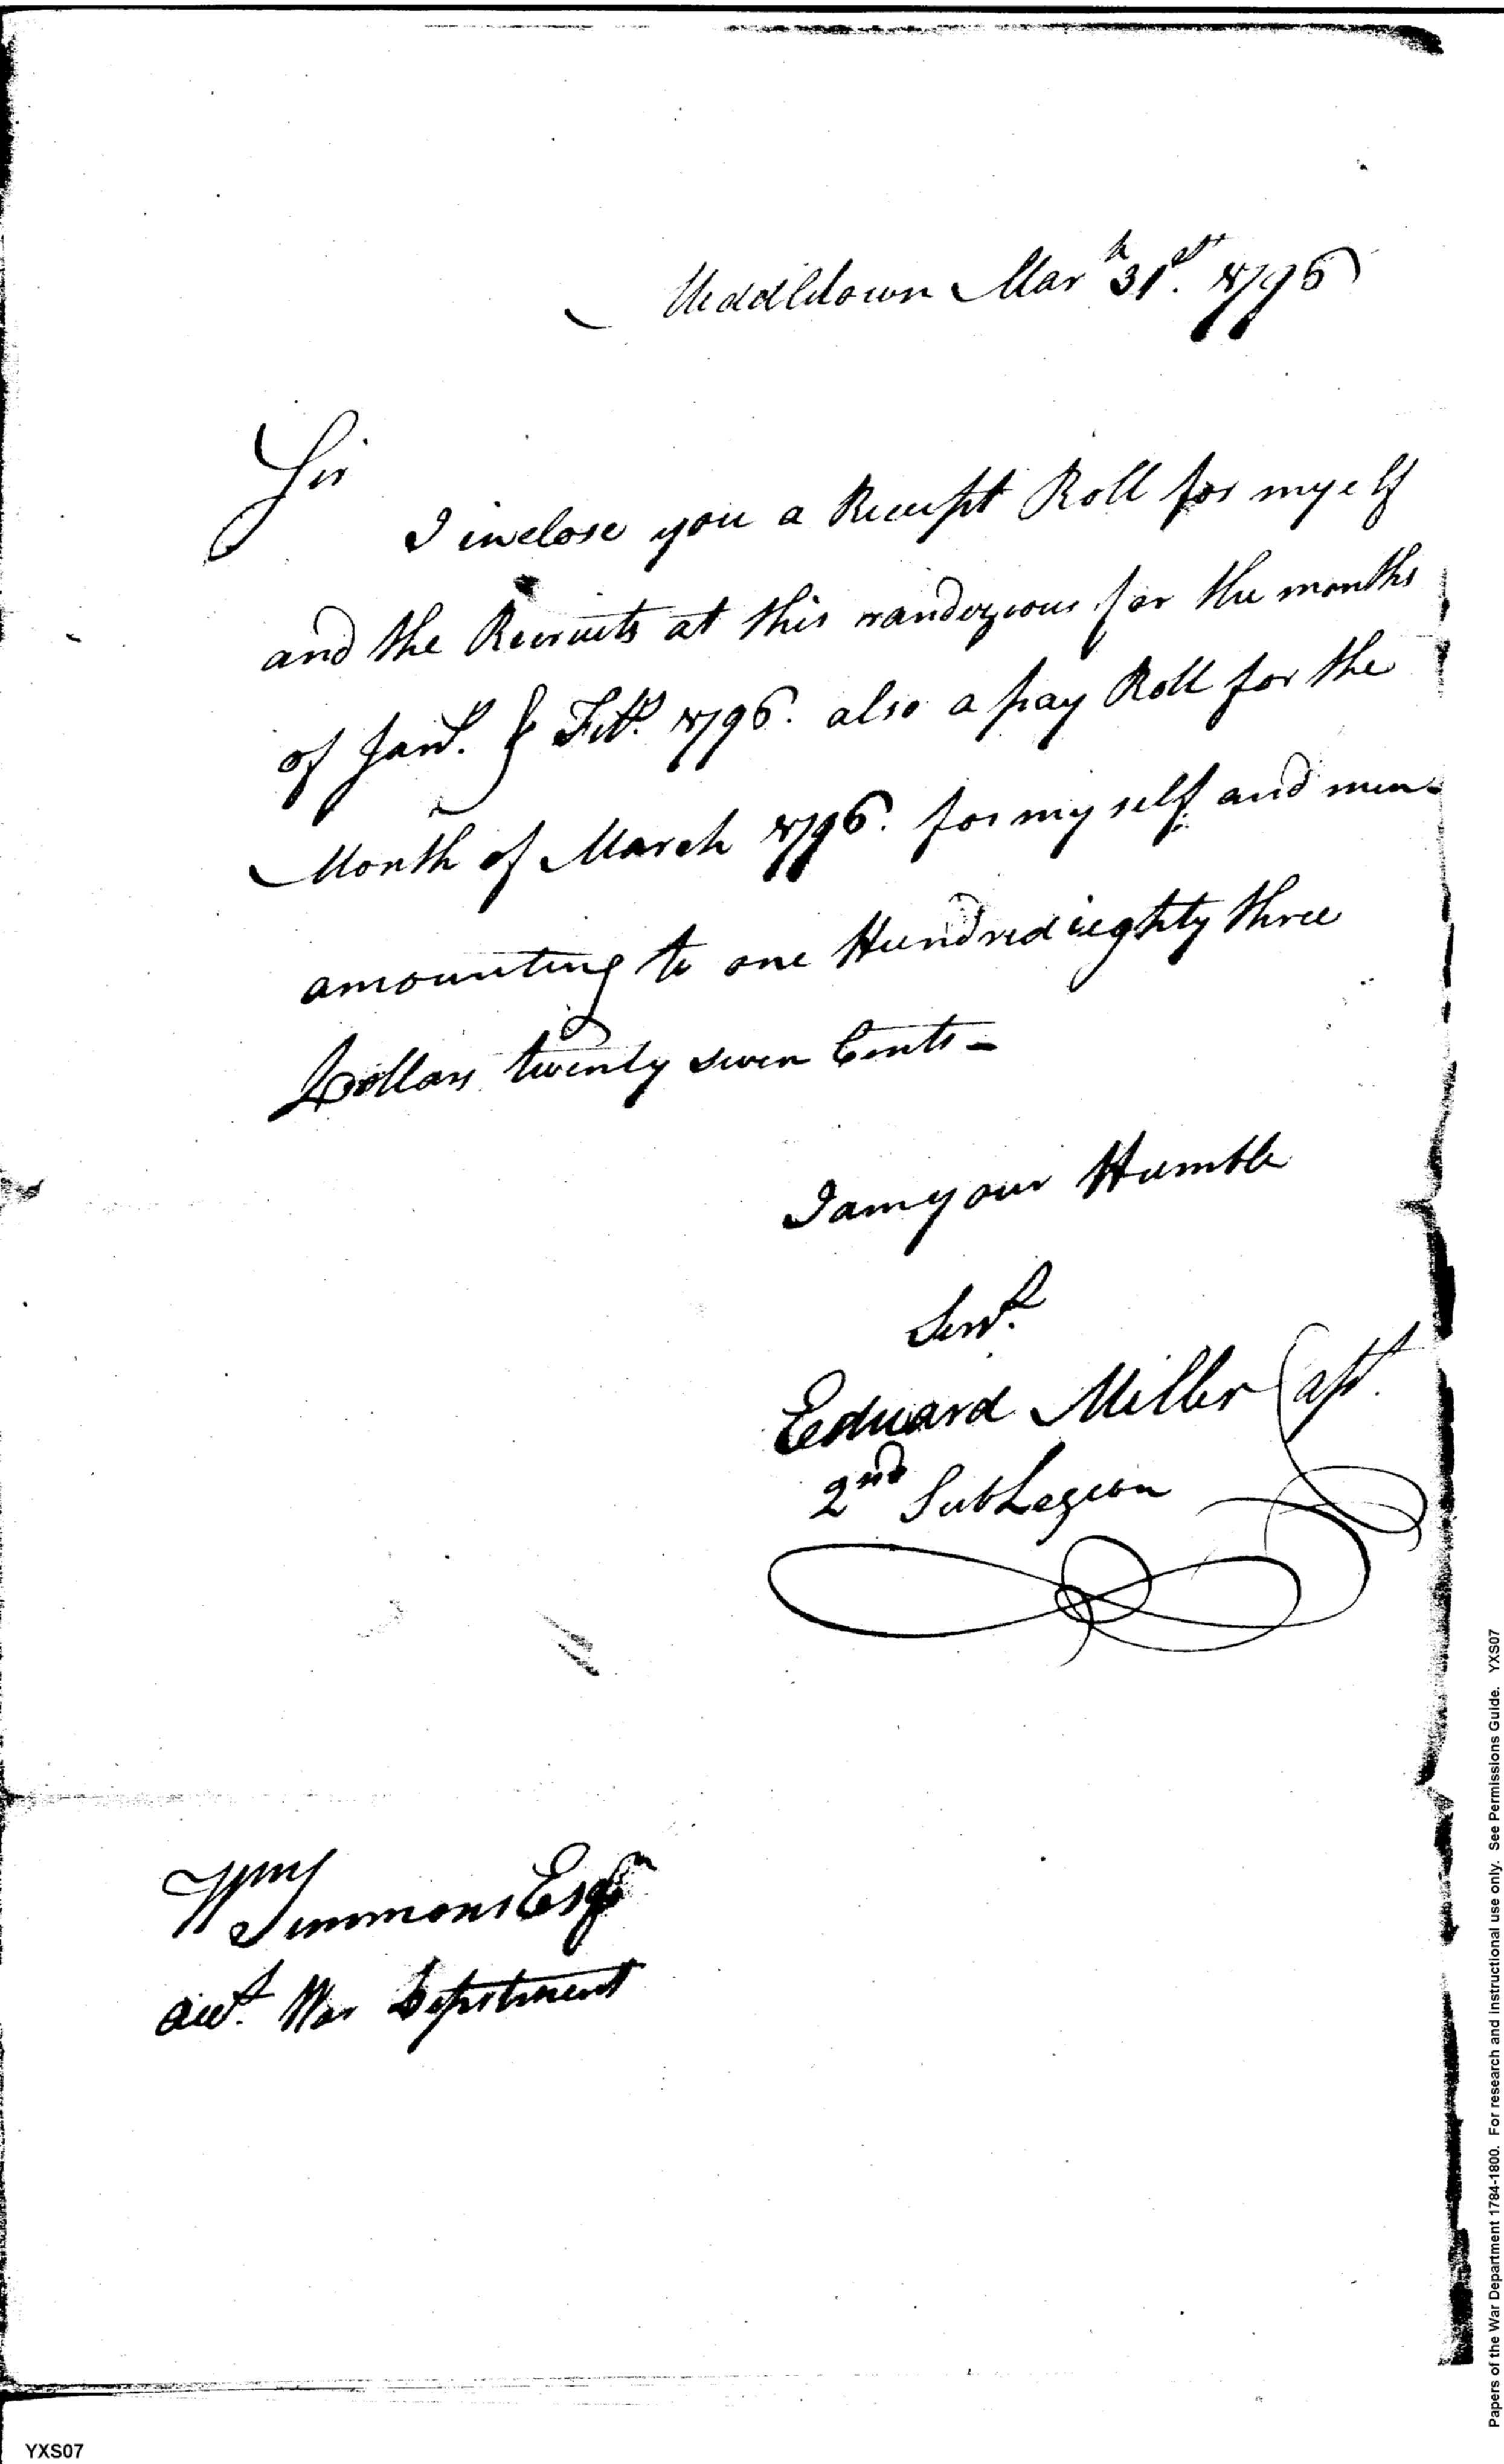 Middletown Mar^h 31^st. 1796
Sir
I inclose you a Receipt Roll for myself
and the Recruits at this randezvous for the months
of Jan^y. & Feb^y. 1796. also a pay Roll for the
Month of March 1796. for my self and men-
amounting to one Hundred eighty three
Dollars twenty seven Cents-
I am your Humble
Serv^t.
Edward Miller Capt.
2^nd SubLegion
W^m Simmons Esq^r
Acct. War Department
Papers of the War Department 1784-1800. For research and instructional use only. See Permissions Guide. YXS07
YXS07